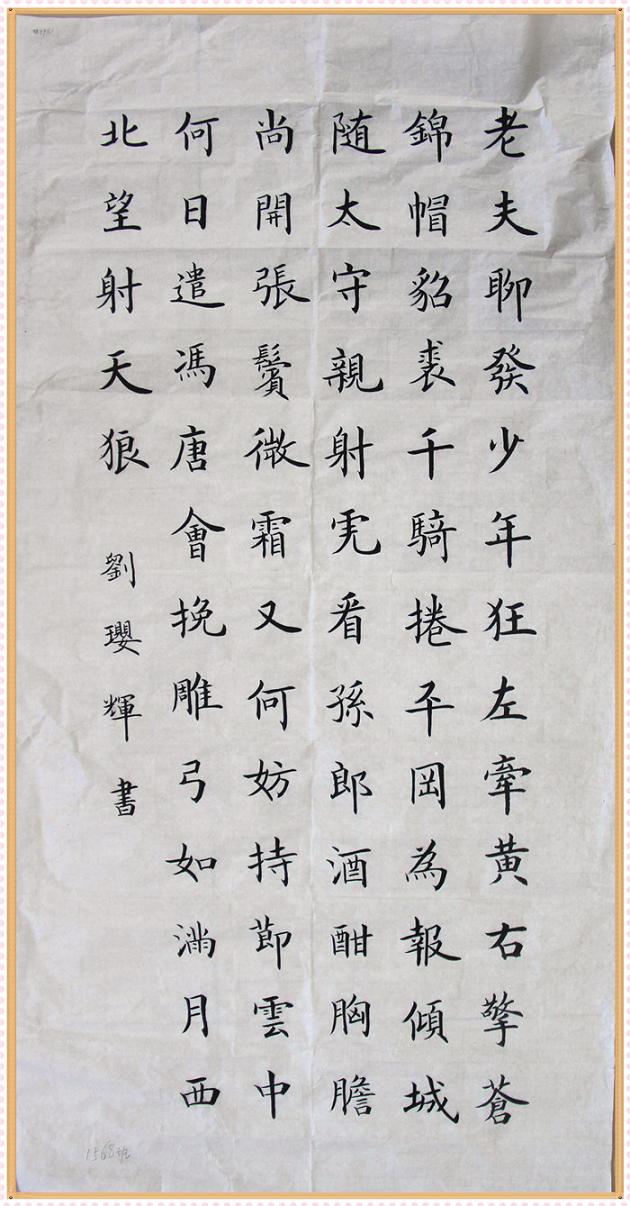 老夫聊發少年狂左牽黄右擎蒼
錦帽貂裘千騎捲平岡為報傾城
随太守親射虎看孫郎酒酣胸膽
尚開張鬢微霜又何妨持節雲中
何日遣馮唐會挽雕弓如滿月西
北望射天狼
劉瓔輝書
1568班